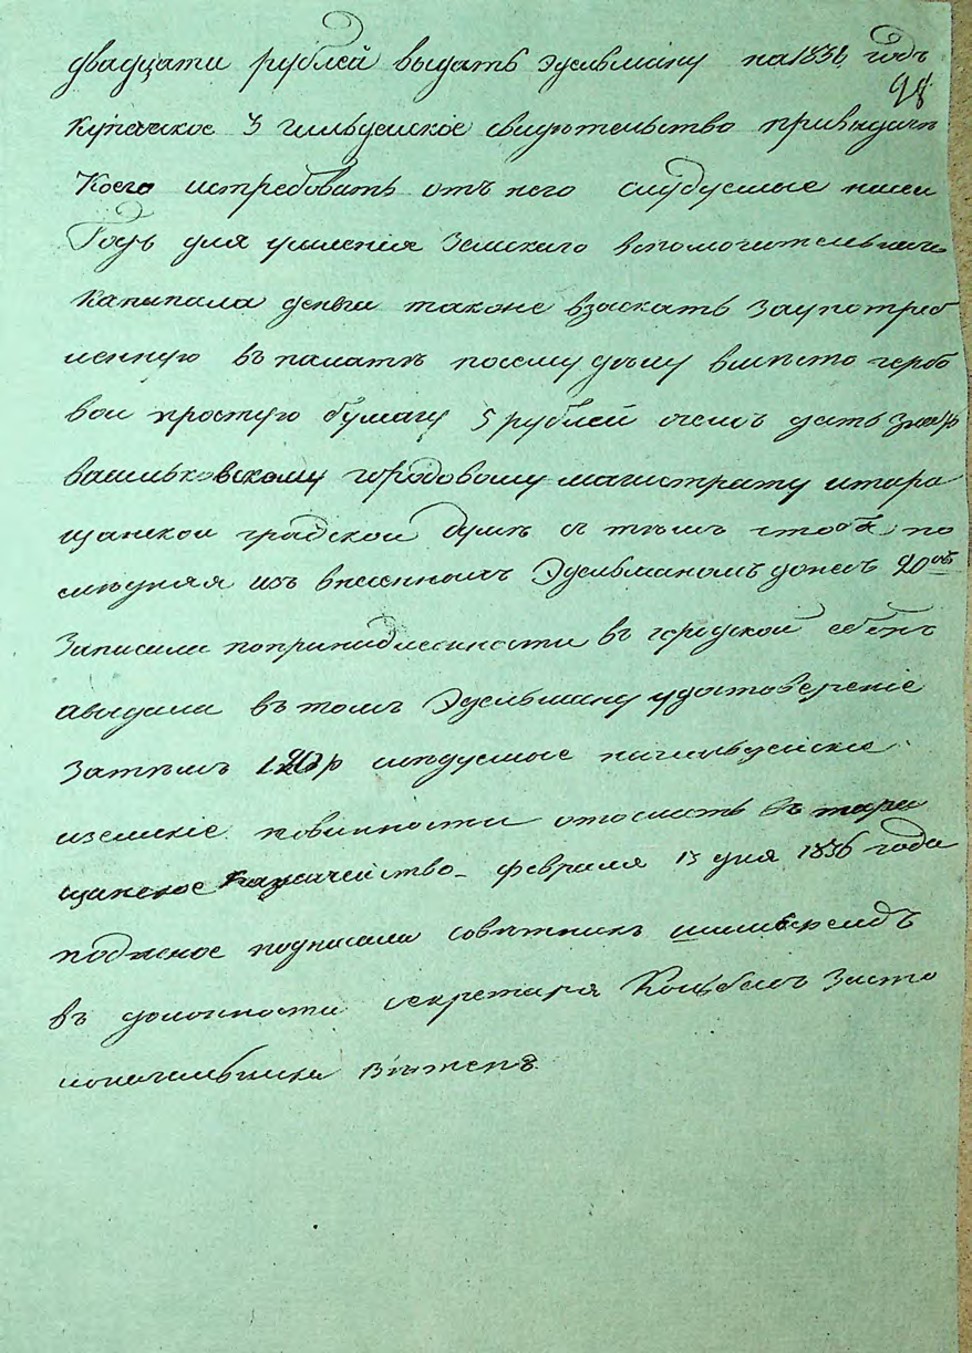 двадцати рублей выдать Эдельману на 1836 годъ
98
купеческое 3 гильдейское свидетельство привыдачѣ
Коего истребовать отъ него следуемые насей
Годъ для усиления Земскаго вспомогительнаго
капитала деньги также взыскать Заупотреб
ленную въ палатѣ посему делу вместо гербо
вои простую бумагу 5 рублей очемъ дать знать
васильковскому городовому магистрату итара
щанской градской думѣ с тѣмъ чтобъ по
следняя изъ внесенныхъ Эдельманомъ денегъ 20
Записали попринадлежности въ городской
авыдали въ томъ Эдельману удостоверение
Затѣмъ р следуемые нагильдейские
иземские повинности отослать въ тара
щанское Казначейство – февраля 13 дня 1836 года
подлиное подписали Советникъ
въ должности секретаря Засто
лоначальника